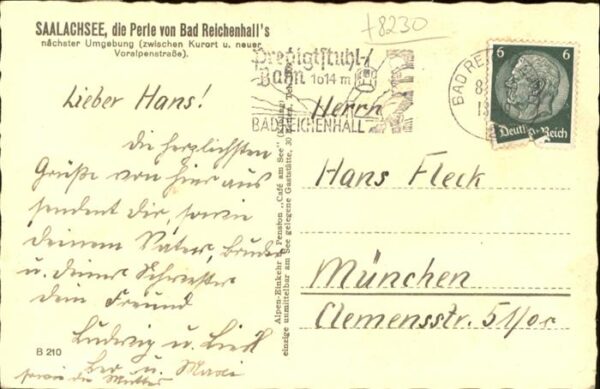 +8230
SAALACHSEE, die Perle von Bad Reichenhall's
nächster Umgebung (zwischen Kurort u. neuer
Voralpenstraße).
Predigtstuhl-
Bahn 1614 m
BAD REICHENHALL
BAD RE
6 6
Deutsches Reich
Lieber Hans!
Die herzlichsten
Grüße von hier aus
sendent dir, sowie
deinem Vater, Bruder
u. deiner Schwester
dein Freund
Ludwig u.
u. Maxi
sowie die Mutter
B 210
Alpen-Einkehr u. Pension „Café am See"
einzige unmittelbar am See gelegene Gaststätte, 30 Betten, Tel.
Herrn
Hans Fleck
München
Clemensstr.